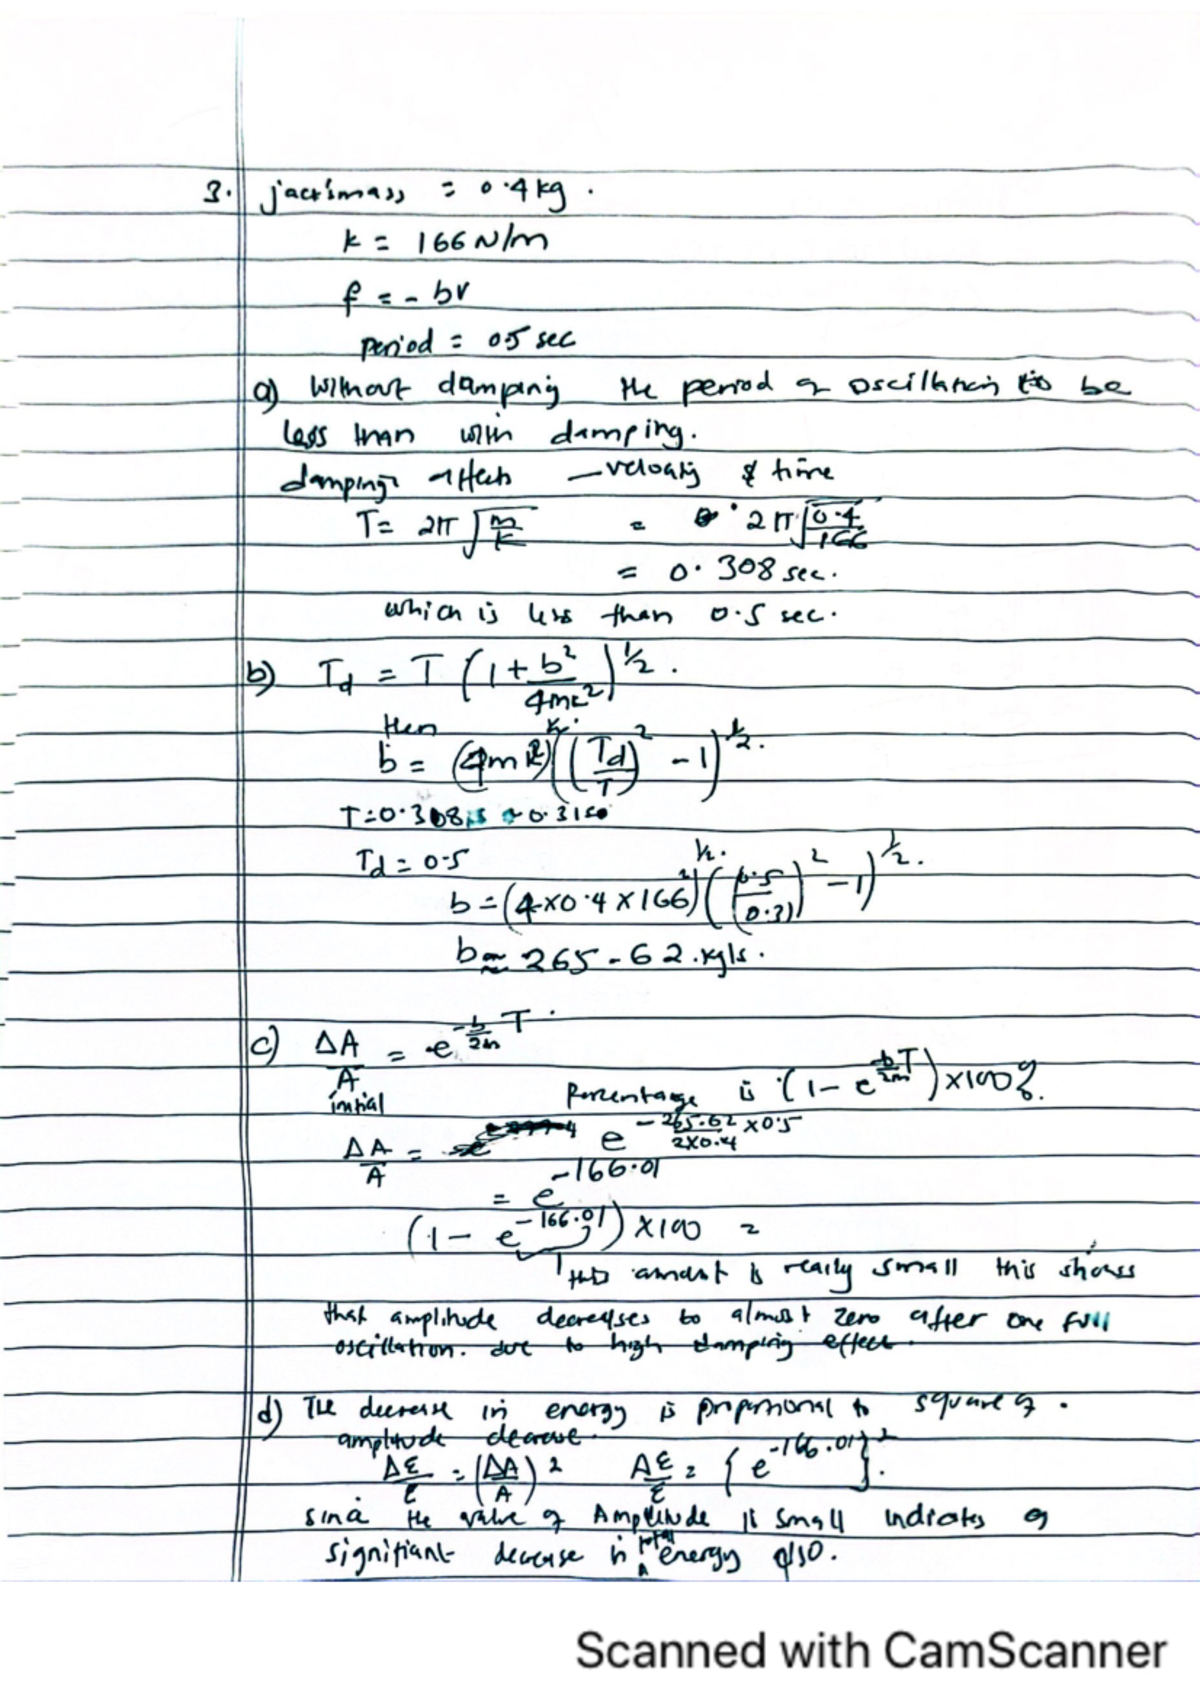 3. jack's mass = 0.4 kg.
k = 166 N/m
f = - bv
period = 0.5 sec
a) Without damping the period of oscillation to be
less than with damping.
damping affects – velocity & time
T = 2π √(m/k) = 2π √(0.4/166)
= 0.308 sec.
which is less than 0.5 sec.
b) Td = T (1 + b²/4mk²)^½.
then
b = (4mk²)^½ ((Td/T)² - 1)^½.
T = 0.308 s ~ 0.31
Td = 0.5
b = (4×0.4×166²)^½ ((0.5/0.31)² - 1)^½.
b ≈ 265.62 kg/s.
c) ΔA/A initial = e^(-b/2m T).
Percentage is (1 - e^(-b/2m T)) ×100%.
ΔA/A = e^(-265.62/2×0.4 ×0.5)
= e^(-166.01)
(1 - e^(-166.01)) ×100 =
this amount is really small this shows
that amplitude decreases to almost zero after one full
oscillation. due to high damping effect.
d) The decrease in energy is proportional to square of.
amplitude decrease.
ΔE/E = (ΔA/A)² ΔE/E = {e^(-166.01)}².
since the value of Amplitude is small indicates a
signifiant decrease in total energy also.
Scanned with CamScanner